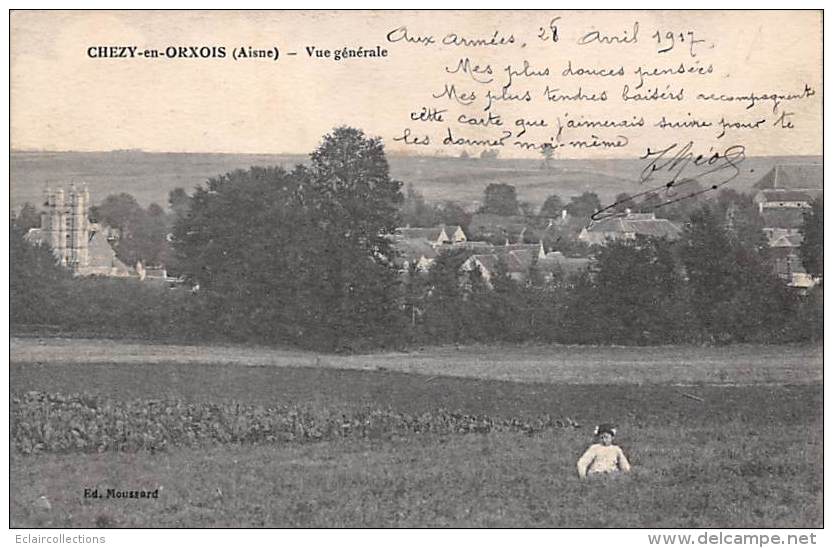 CHEZY-en-ORXOIS (Aisne) – Vue générale
Aux Armées, 28 Avril 1917.
Mes plus douces pensées
Mes plus tendres baisers accompagnent
cette carte que j'aimerais suivre pour te
les donner moi-même
Théo
Ed. Moussard
Eclaircollections
https://www.delcampe.net